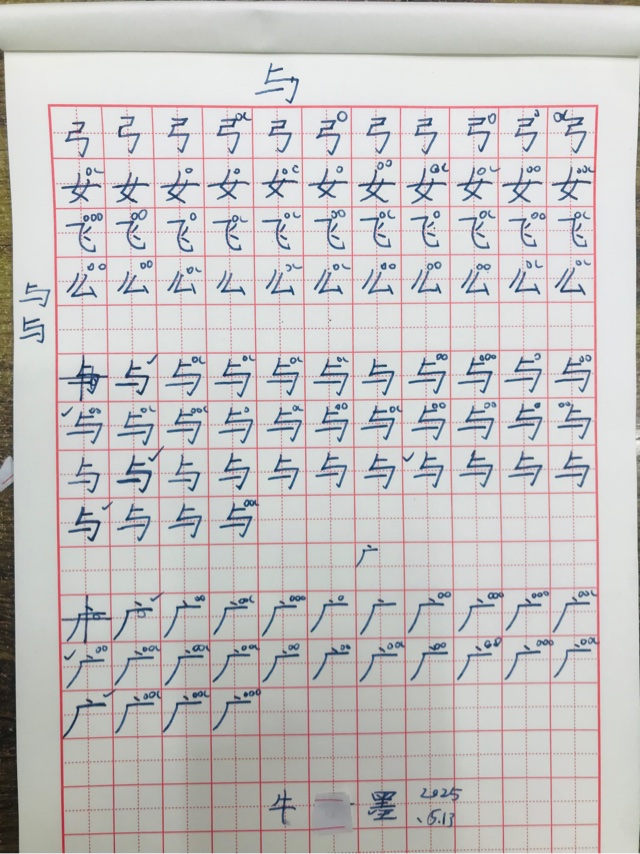 与
弓弓弓弓弓弓弓弓弓弓弓
女女女女女女女女女女女
飞飞飞飞飞飞飞飞飞飞飞
么么么么么么么么么么么
与
与
与与与与与与与与与与与
与与与与与与与与与与与
与与与与与与与与与与与
与与与与
广
广广广广广广广广广广广
广广广广广广广广广广广
广广广广
牛 墨 2025
.6.13